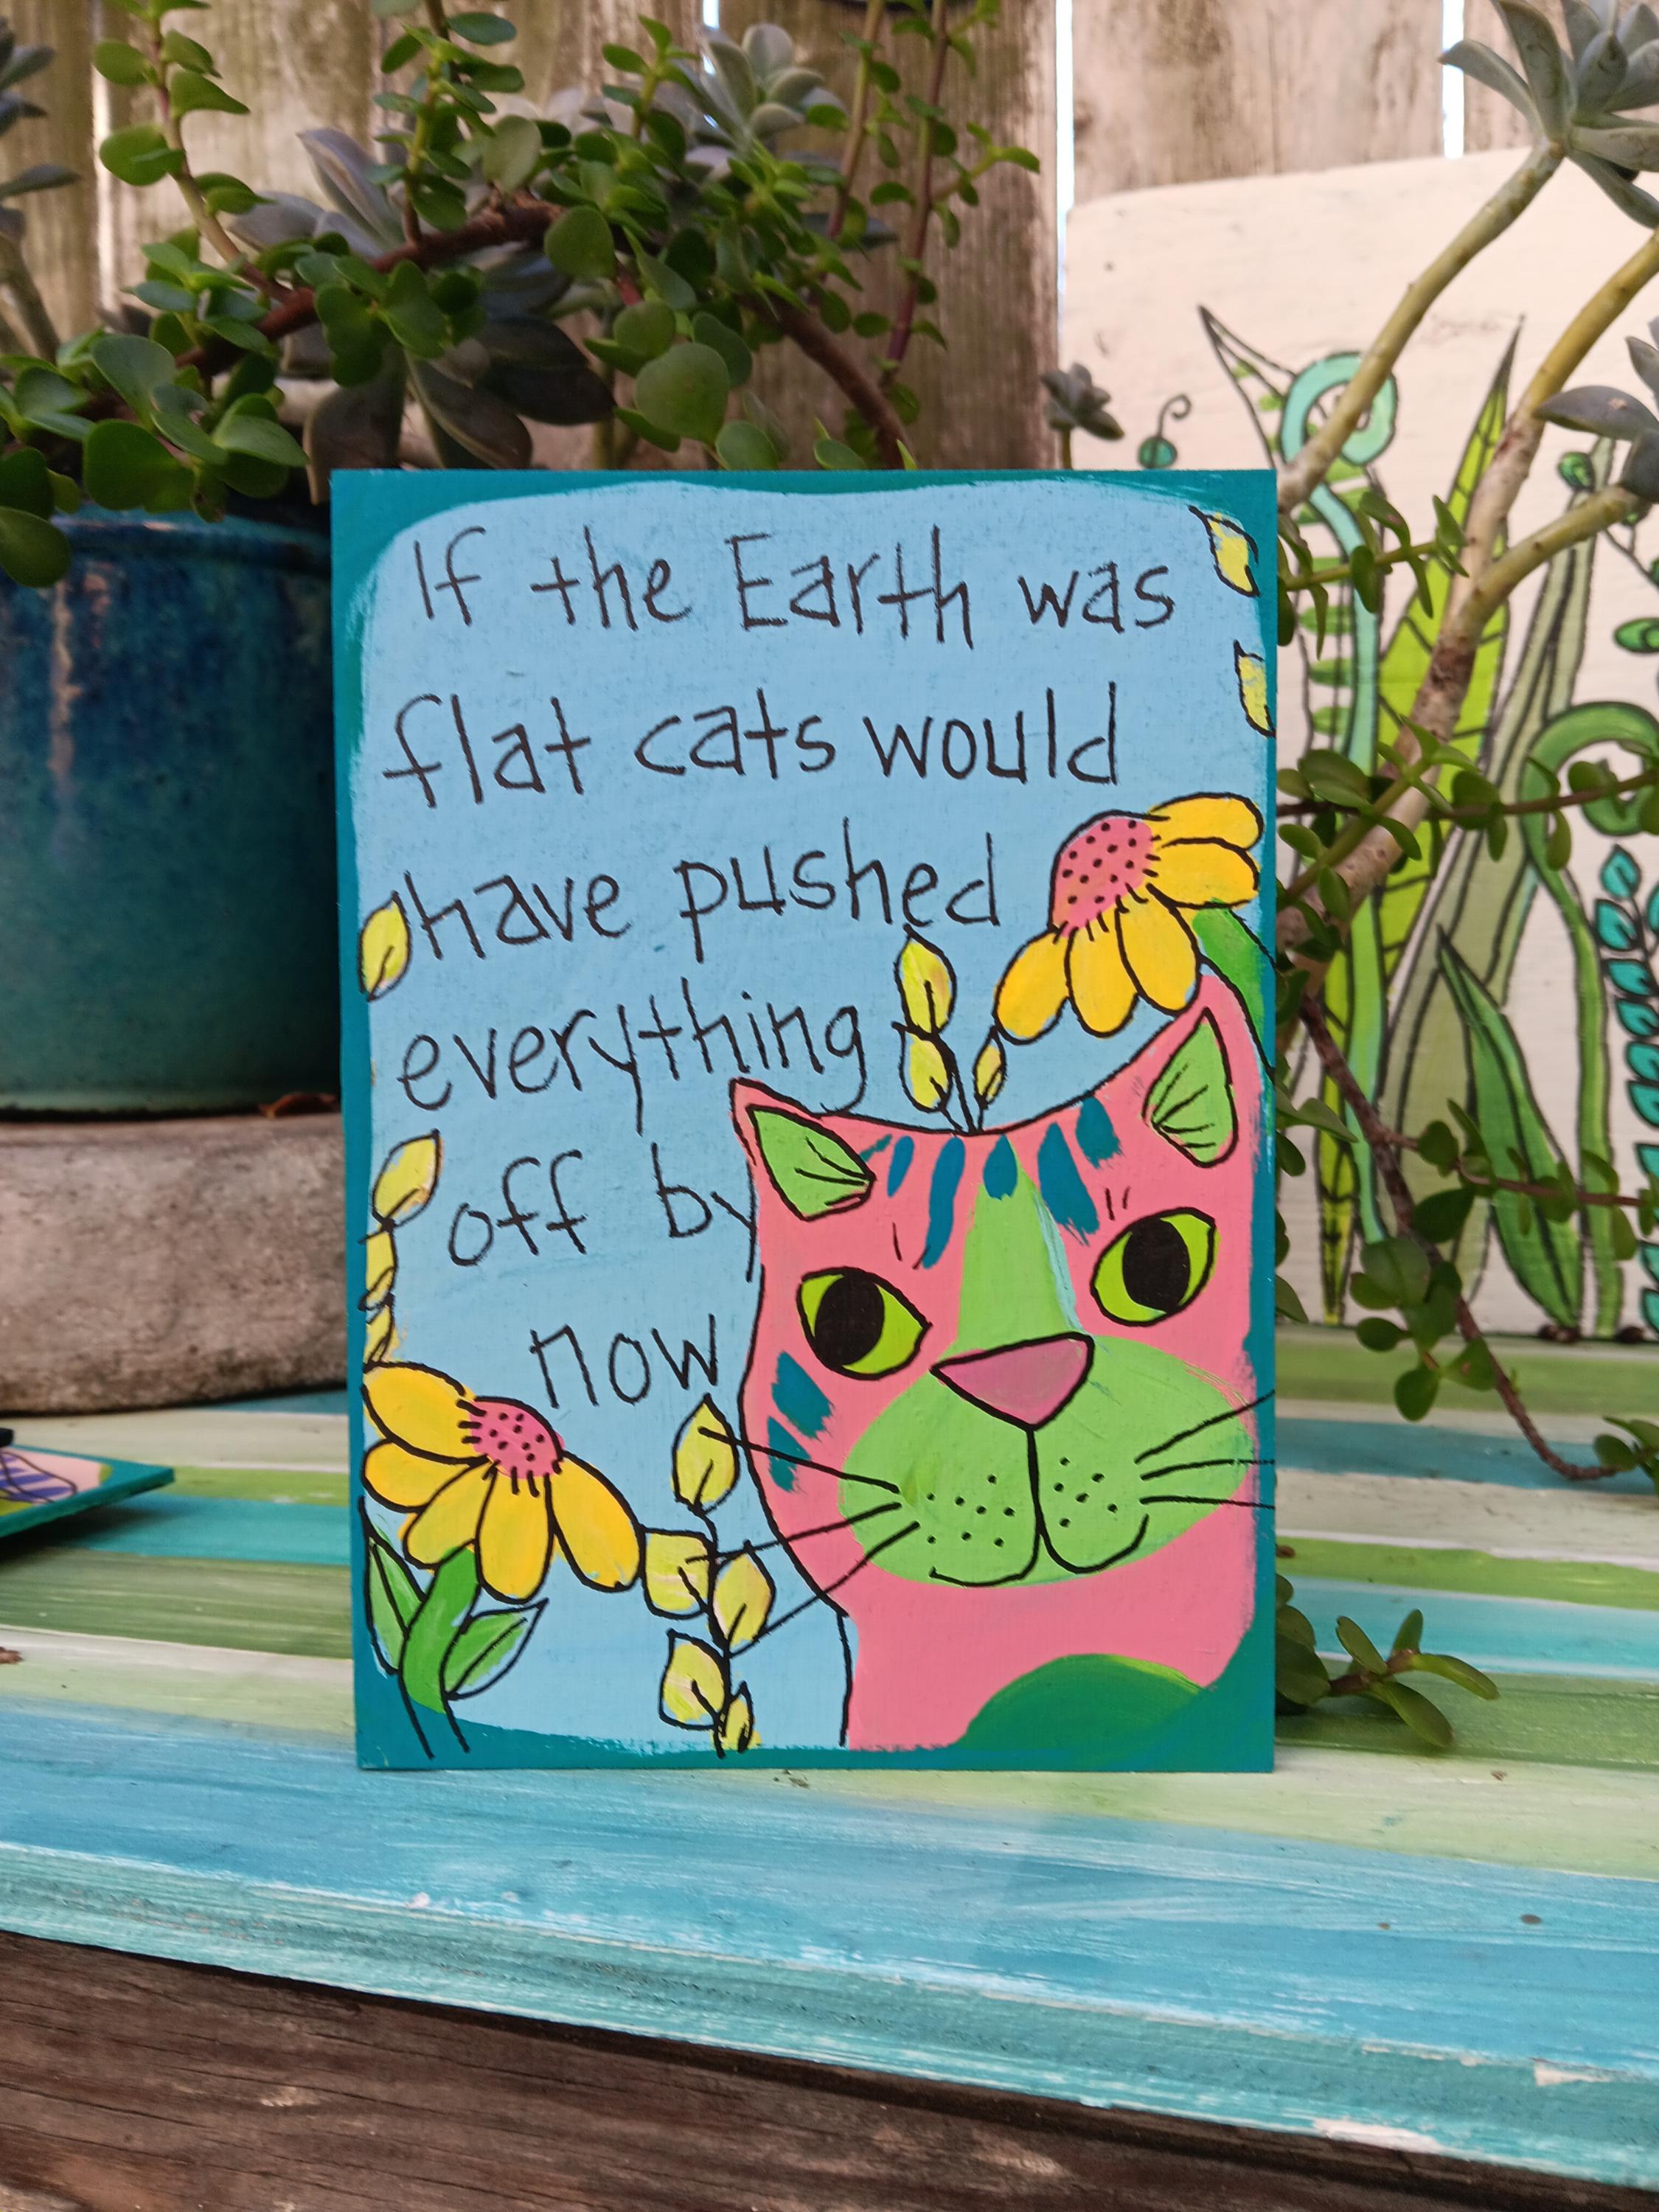 If the Earth was
flat cats would
have pushed
everything
off by
now